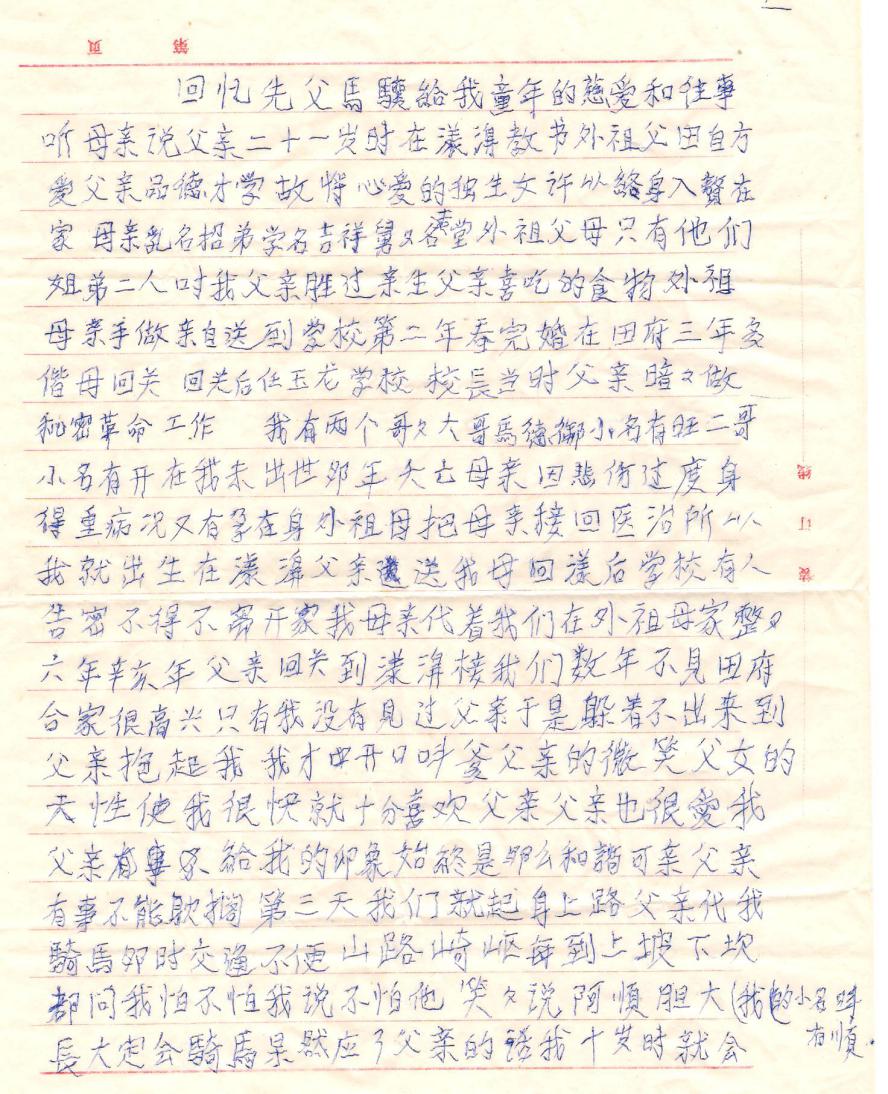 第 页
回忆先父馬驥給我童年的慈爱和往事
听母亲说父亲二十一岁时在漾濞教书外祖父田自方
爱父亲品德才学故将心爱的独生女许以終身入贅在
家 母亲乳名招弟学名吉祥舅々名堂外祖父母只有他们
姐弟二人对我父亲胜过亲生父亲喜吃的食物外祖
母亲手做亲自送到学校第二年春完婚在田府三年多
偕母回关 回关后任玉龙学校 校長当时父亲暗々做
秘密革命工作 我有两个哥々大哥馬德御小名有旺二哥
小名有开在我未出世那年夭亡母亲因悲伤过度身
得重病况又有孕在身外祖母把母亲接回医治所以
我就出生在漾濞父亲送我母回漾后学校有人
告密不得不离开家我母亲代着我们在外祖母家整々
六年辛亥年父亲回关到漾濞接我们数年不見田府
合家很高兴只有我没有見过父亲于是躲着不出来到
父亲抱起我 我才开口叫爹父亲的微笑父女的
天性使我很快就十分喜欢父亲父亲也很愛我
父亲給我的印象始終是那么和謁可亲父亲
有事不能耽搁 第三天我们就起身上路父亲代我
騎馬那时交通不便山路崎岖每到上坡下坎
都问我怕不怕我说不怕他笑々说阿順胆大(我的小名叫
有順.
長大定会騎馬果然应了父亲的话我十岁时就会
装 订 线